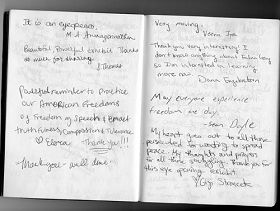 It is an eyeopener.
Beautiful, Powerful exhibit. Thanks
so much for sharing.
Thomas
Powerful reminder to Practice
our American Freedoms
of Freedom of Speech &
Truthfulness, Compassion & Tolerance
Thank you!!!
Marvelous - well done.
Very moving.
Thank you, very interesting! I
don't know anything about Falun Gong
so I'm interested in learning
more now.
Dana
May everyone experience
freedom one day.
Sean Doyle
My heart goes out to all those
persecuted for wanting to spread
peace. My thoughts and prayers
to all those struggling. Thank you for
this eye opening exhibit.